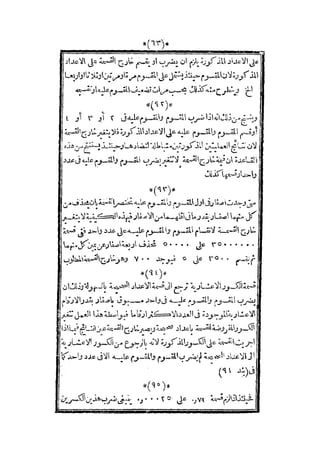 *(٦٣)*
على الاعداد المذكورة يلزم ان يضرب او يقسم خارج القسمة على الاعداد
المذكورة لان المقسوم حينئذ يشتمل على المقسوم مرة او مرتين او ثلاثا او اربعا
الخ ويطرح منه كذلك بحسب مرات تضعيف المقسوم عليه او تنصيفه
*(٩٢)*
وينتج من ذلك انه اذا ضرب المقسوم والمقسوم عليه فى ٢ او ٣ او ٤
او قسم المقسوم والمقسوم عليه على الاعداد المذكورة فلا يتغير خارج القسمة
لان نتائج العمليتين المذكورتين متباطلة لتضادها وحينئذ يستنتج من هذه
القاعدة ان قيمة خارج القسمة لا تتغير بضرب المقسوم والمقسوم عليه فى عدد
واحد او قسمتهما كذلك
*(٩٣)*
متى وجدت اصفار فى اول المقسوم والمقسوم عليه تختصر القسمة بان يحذف من
كل منهما اصفار بقدر ما فى اقلهما من الاصفار فبهذه الكيفية لا يتغير
خارج القسمة لانقسام المقسوم والمقسوم عليه على عدد واحد ففى قسمة
٣٥٠٠٠٠٠٠ على ٥٠٠٠٠ تحذف اربعة اصفار من يمين كل منهما
ثم يقسم ٣٥٠٠ على ٥ فيوجد ٧٠٠ وهو خارج القسمة المطلوب
*(٩٤)*
قسمة الكسور الاعشارية ترجع الى قسمة الاعداد الصحيحة بالسهولة وذلك ان
يضرب المقسوم والمقسوم عليه فى واحد مسبوق باصفار بقدر الارقام
الاعشارية الموجودة فى العدد الاكثر ارقاما فبواسطة هذا العمل تتغير
الكسور المفروضة للقسمة باعداد صحيحة ويصير خارج القسمة عين الناتج فيما اذا
اجريت القسمة على الكسور المذكورة لانه بالرجوع من الكسور الاعشارية
الى الاعداد الصحيحة لم يضرب المقسوم والمقسوم عليه الا فى عدد واحد كما
فى (بند ٩٤)
*(٩٥)*
فحينئذ اذا لزم قسمة ٧٩ر٠ على ٠٠٠٢٥ر٠ ينبغى ضرب هذين الكسرين